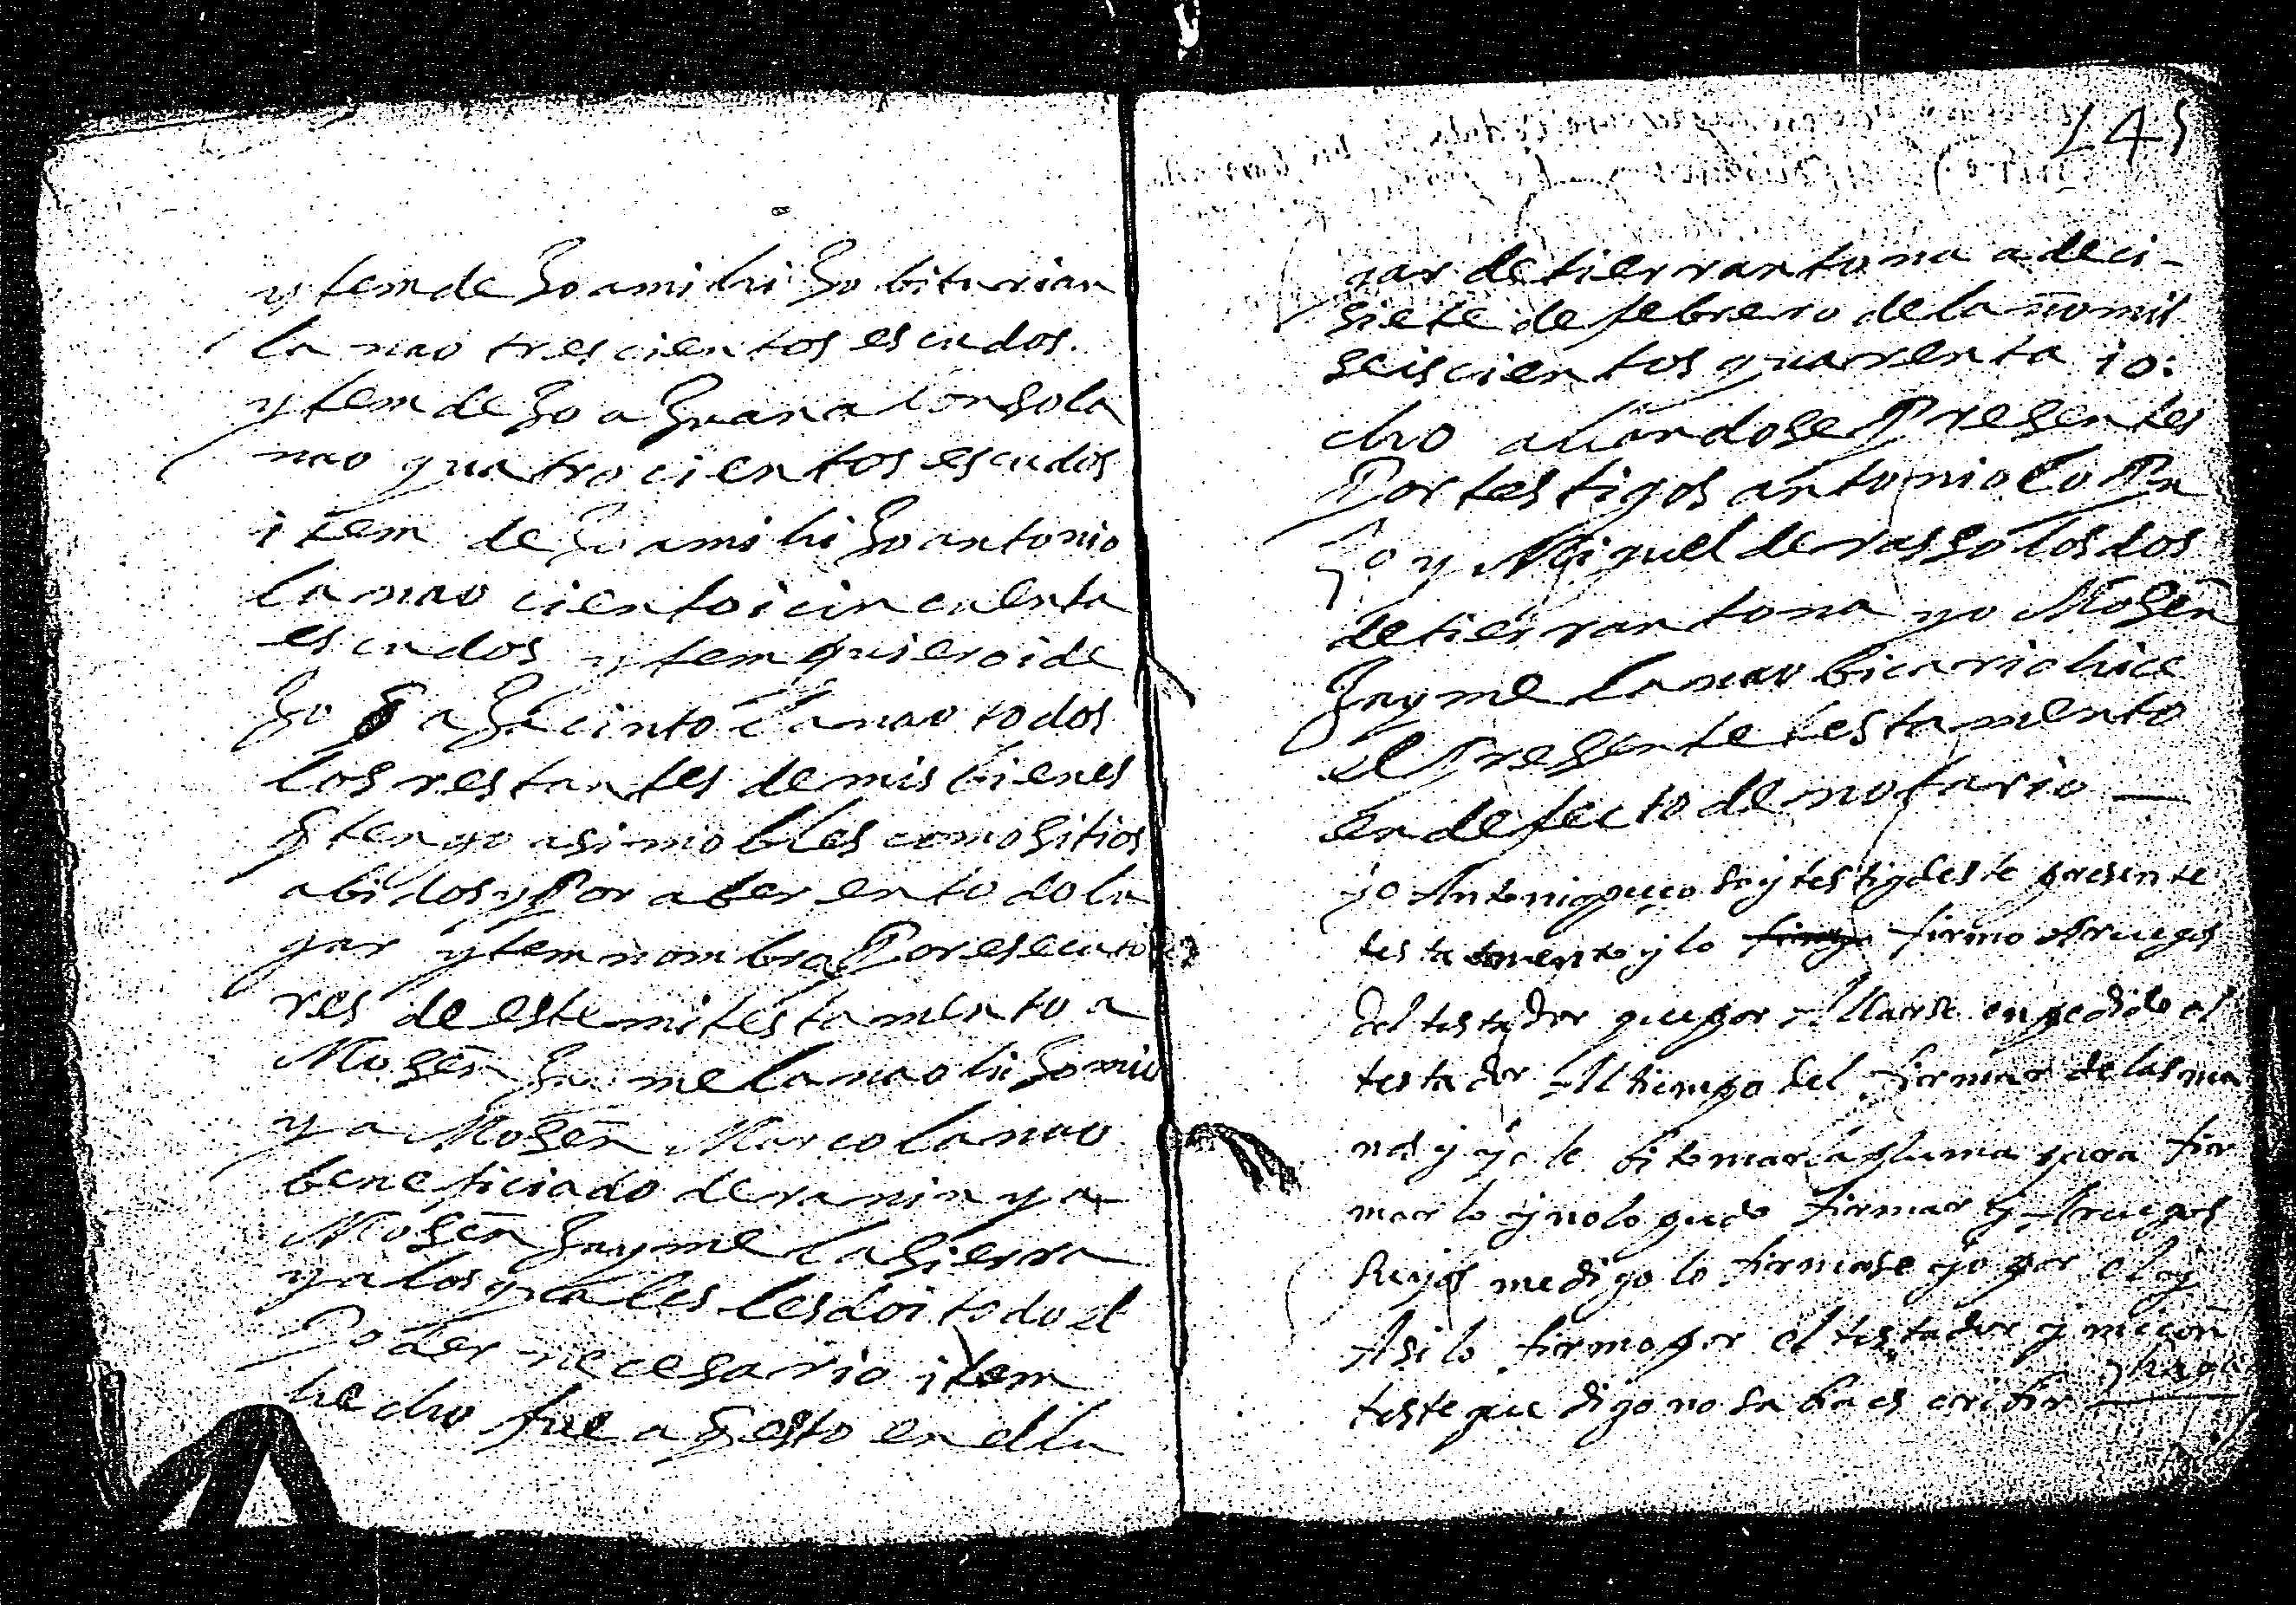 ytem de Jo a mi hi Jo biturian
la nao trescientos escudos.
ytem de Jo a Juana lonso la
nao quatrocientos escudos
item de Jo a mi hi Jo antonio
lanao cientoicincuenta
escudos ytem quiero i de
Jo a Jacinto lanao todos
los restantes de mis bienes
q̃ tengo asi mobles como sitios
abidos y Por aber en todo lu
gar ytem nombro Por esecuto
res de este mi testamento a
Mosẽn Jaime lanao hi Jo mio
y a Mosẽn Marco lanao
beneficiado de ranin y a
Mosẽn Jayme lasierra
y a los quales les doi todo el
Poder necesario item
hecho fue aq̃esto en el lu
145
gar de tierrantona a deci-
siete de febrero del año mil
seiscientos quarenta io:
cho allandose Presentes
Por testigos antonio
Jo y Miguel de rasso los dos
de tierrantona yo Mosẽn
Jayme lanao bicario hice
el Presente testamento
en defecto de notario —
yo Antonio puço soy testigo deste presente
testatamento y lo firmo A ruegos
del testador que por allarse enpedido el
testador Al tiempo del firmar de las ma
nos y yo le bi tomar la pluma para fir
marlo y no lo pudo firmar y A ruegos
suyos me digo lo firmase yo por el y
Asi lo firmo por el testador y mi con
teste que digo no sabia escribir